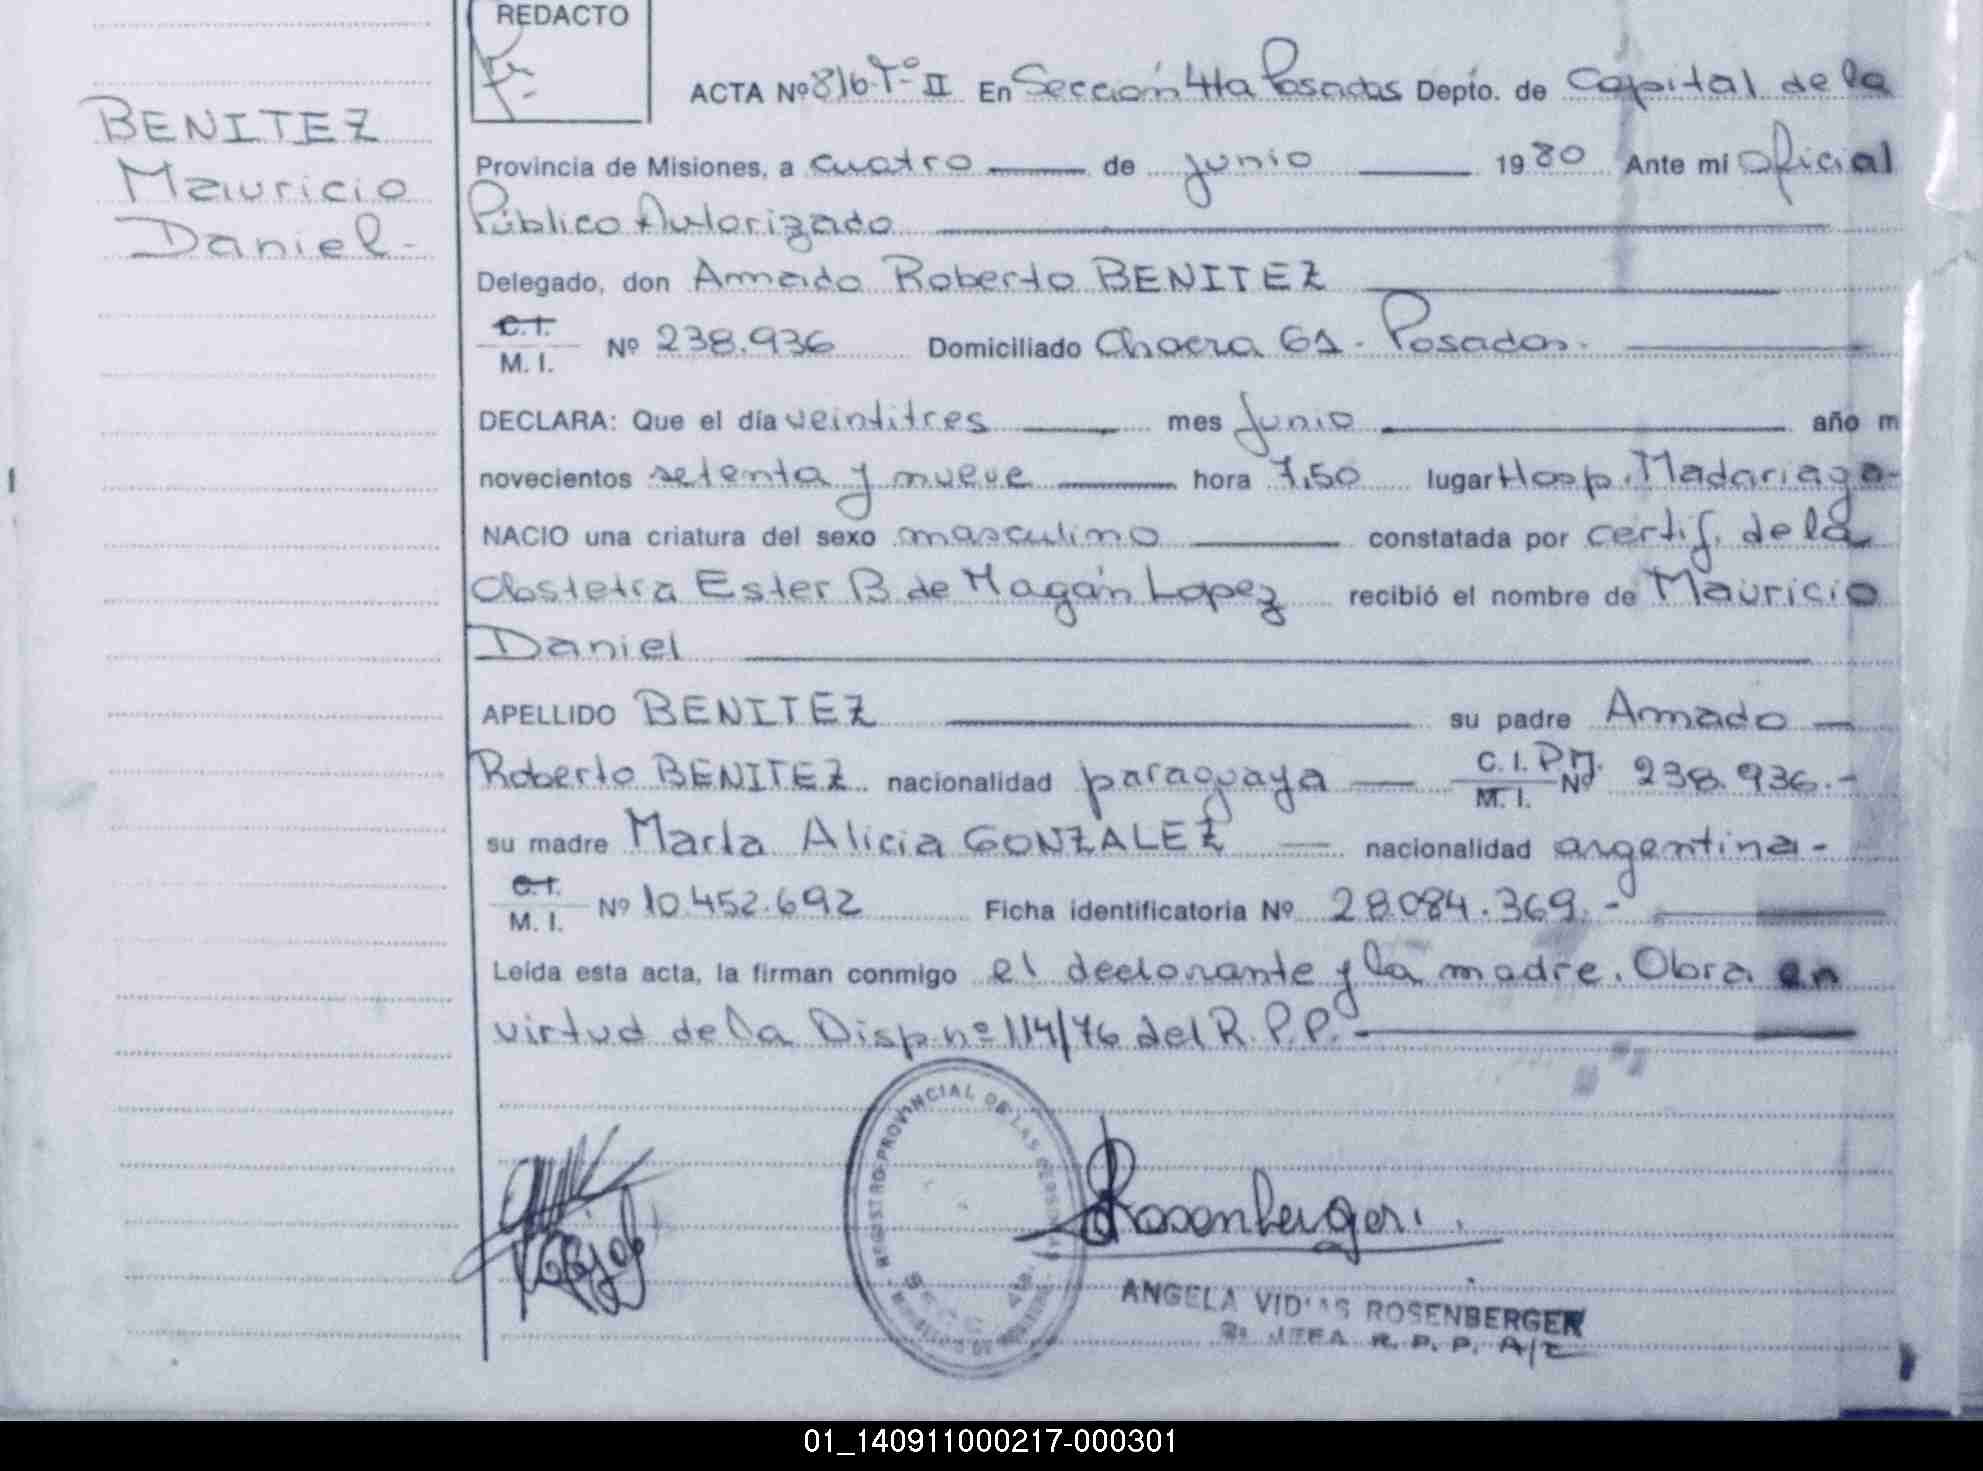 REDACTO
ACTA Nº 816 Tº II En Sección 4ta Posadas Depto. de Capital de la
BENITEZ
Mauricio
Daniel.-
Provincia de Misiones, a cuatro de junio 1980 Ante mi oficial
Público Autorizado
Delegado, don Armado Roberto BENITEZ
C.I.
M. I. Nº 238.936 Domiciliado Chacra 61. Posadas.
DECLARA: Que el día veintitres mes Junio año m
novecientos setenta y nueve hora 7,50 lugar Hosp. Madariaga-
NACIO una criatura del sexo masculino constatada por certif. de la
Obstetra Ester B de Magán Lopez recibió el nombre de Mauricio
Daniel
APELLIDO BENITEZ su padre Armado
Roberto BENITEZ nacionalidad paraguaya C. I. P M. Nº 238.936.-
M. I.
su madre Marta Alicia GONZALEZ nacionalidad argentina-
C.I.
M. I. Nº 10.452.692 Ficha identificatoria Nº 28.084.369.-
Leída esta acta, la firman conmigo el declarante y la madre. Obra en
virtud de la Disp. nº 114/76 del R. P. P.-
REGISTRO PROVINCIAL DE LAS PERSONAS
Rosenberger
ANGELA ROSENBERGER
R. P. P. A/C
01_140911000217-000301